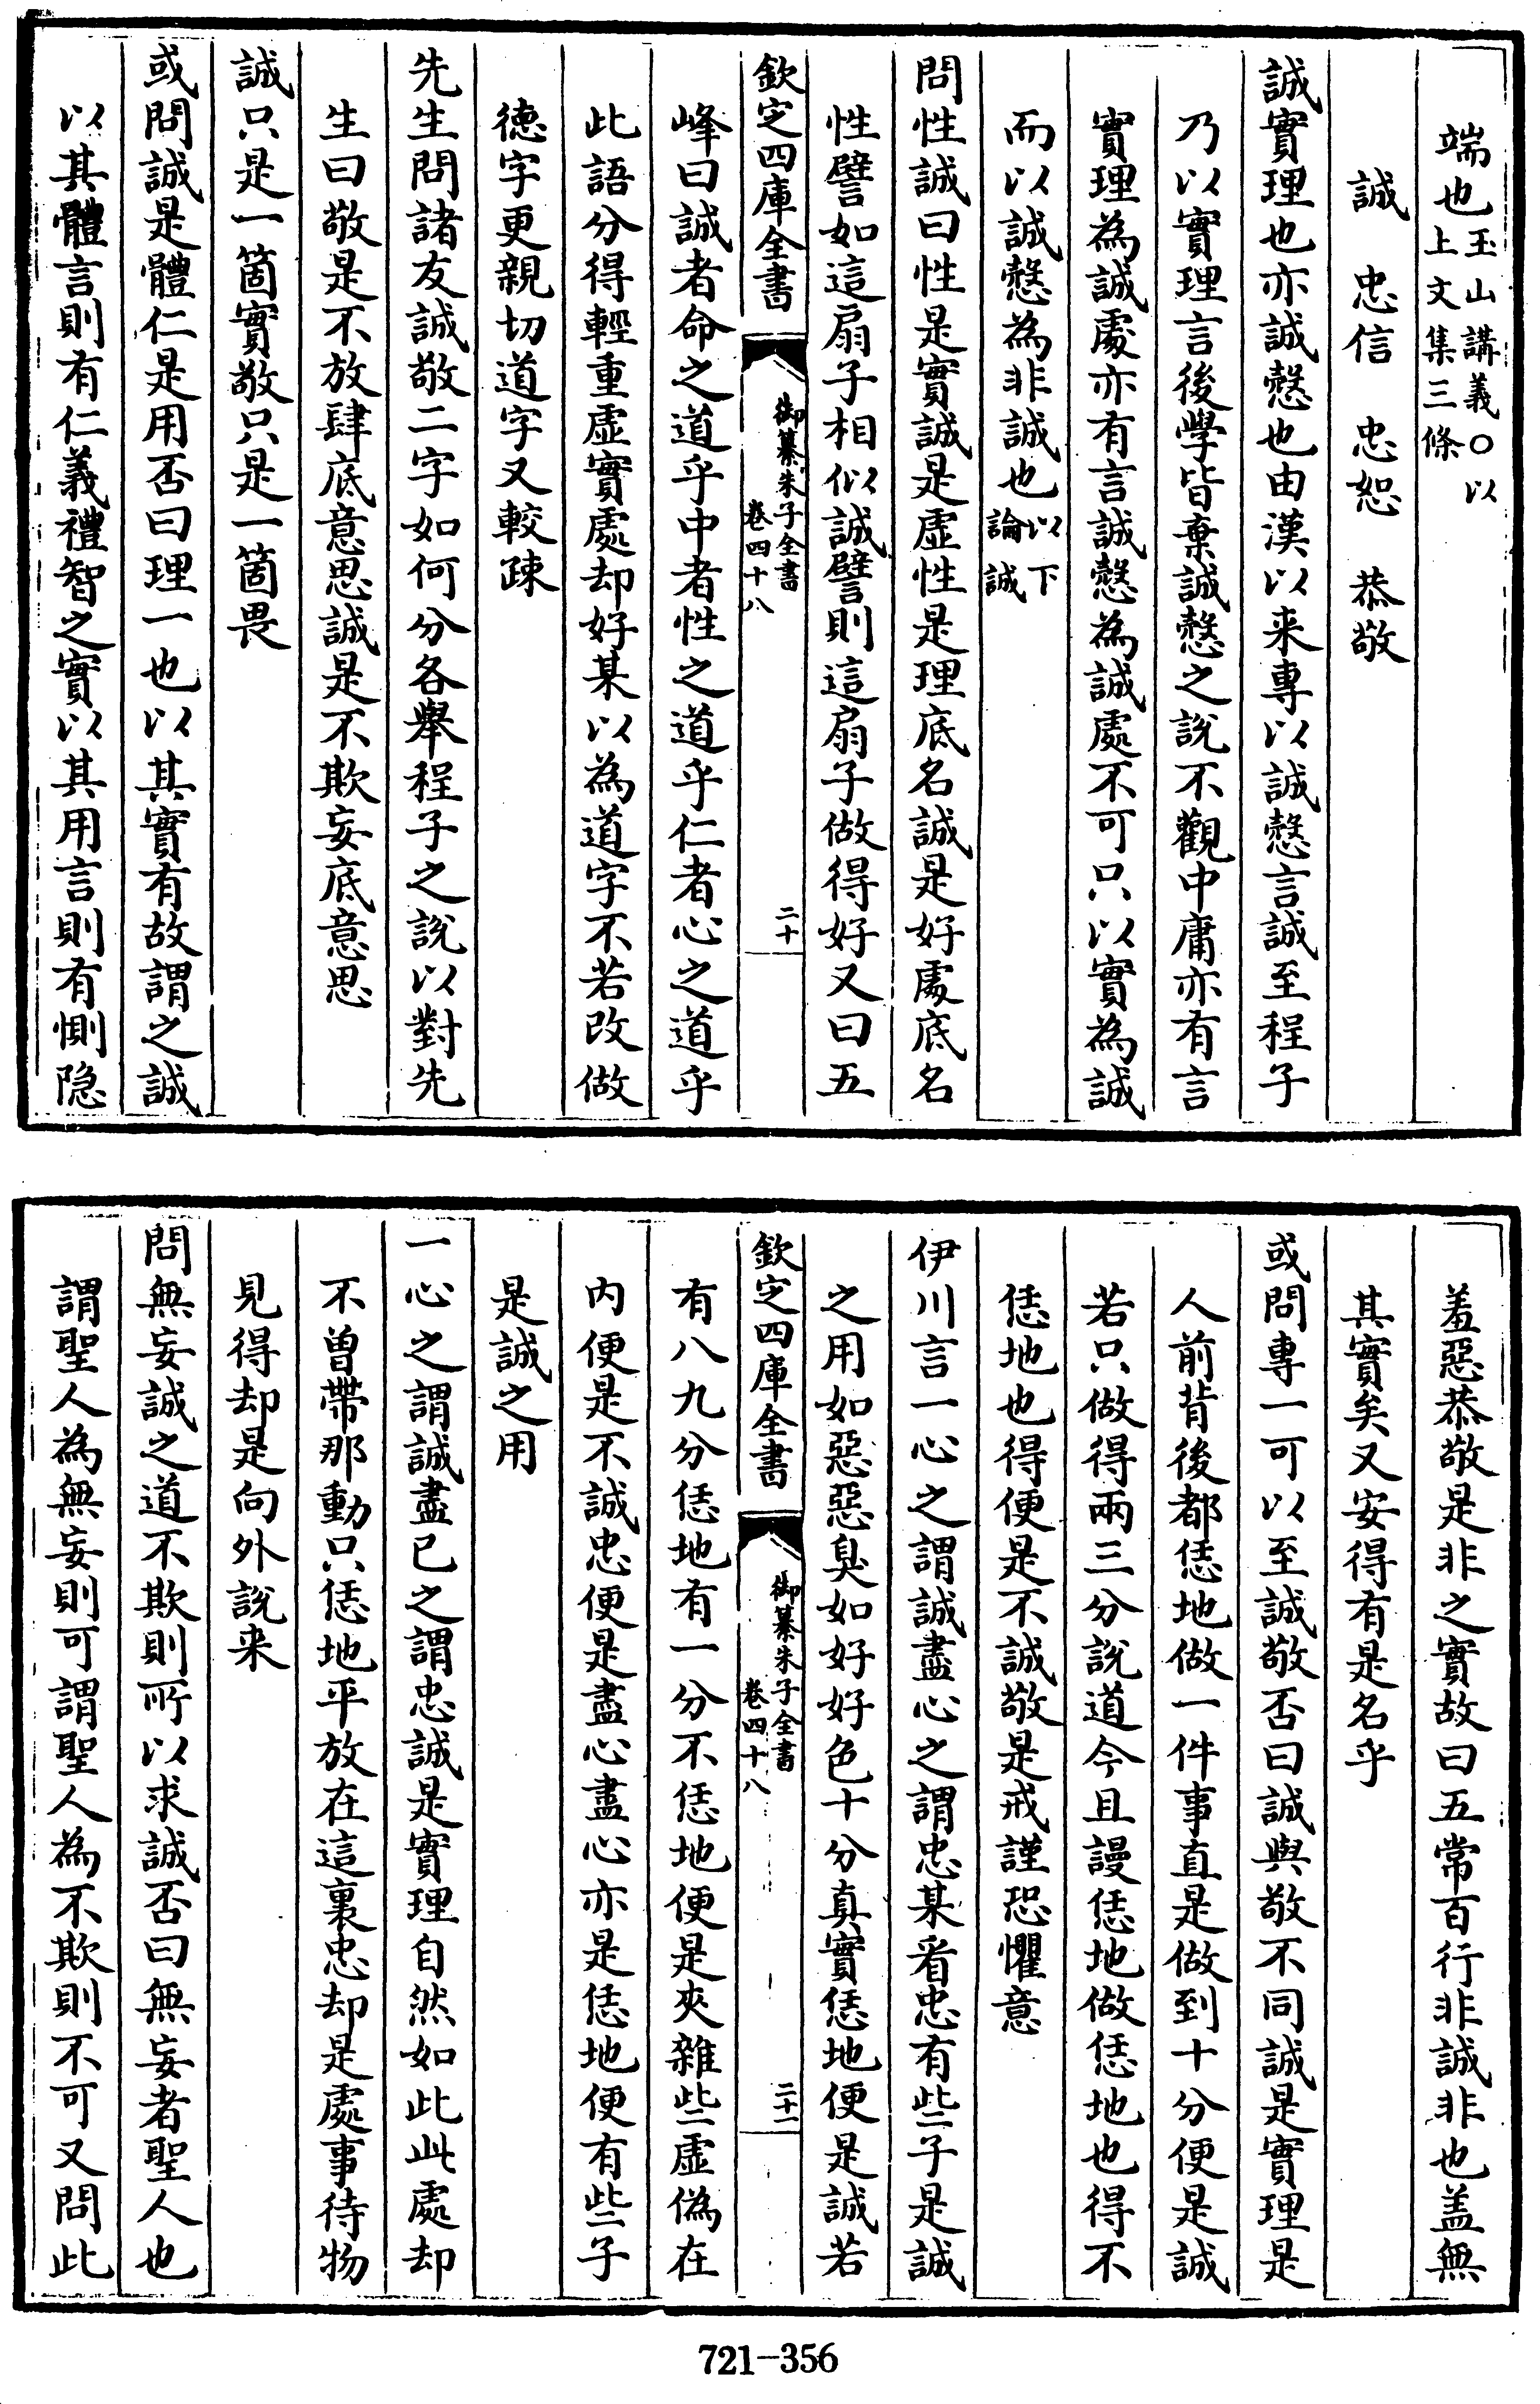 端也玉山講義○以上文集三條
誠　忠信　忠恕　恭敬
誠實理也亦誠慤也由漢以来專以誠慤言誠至程子
乃以實理言後學皆棄誠慤之說不觀中庸亦有言
實理為誠處亦有言誠慤為誠處不可只以實為誠
而以誠慤為非誠也以下論誠
問性誠曰性是實誠是虛性是理底名誠是好處底名
性譬如這扇子相似誠譬則這扇子做得好又曰五
欽定四庫全書　御纂朱子全書卷四十八　二十
峰曰誠者命之道乎中者性之道乎仁者心之道乎
此語分得輕重虛實處却好某以為道字不若改做
德字更親切道字又較踈
先生問諸友誠敬二字如何分各舉程子之說以對先
生曰敬是不放肆底意思誠是不欺妄底意思
誠只是一箇實敬只是一箇畏
或問誠是體仁是用否曰理一也以其實有故謂之誠
以其體言則有仁義禮智之實以其用言則有惻隐
羞惡恭敬是非之實故曰五常百行非誠非也盖無
其實矣又安得有是名乎
或問專一可以至誠敬否曰誠與敬不同誠是實理是
人前背後都恁地做一件事直是做到十分便是誠
若只做得兩三分說道今且謾恁地做恁地也得不
恁地也得便是不誠敬是戒謹恐懼意
伊川言一心之謂誠盡心之謂忠某看忠有些子是誠
之用如惡惡臭如好好色十分真實恁地便是誠若
欽定四庫全書　御纂朱子全書卷四十八　二十一
有八九分恁地有一分不恁地便是夾雜些虛偽在
内便是不誠忠便是盡心盡心亦是恁地便有些子
是誠之用
一心之謂誠盡已之謂忠誠是實理自然如此此處却
不曽帶那動只恁地平放在這裏忠却是處事待物
見得却是向外說来
問無妄誠之道不欺則所以求誠否曰無妄者聖人也
謂聖人為無妄則可謂聖人為不欺則不可又問此
721-356